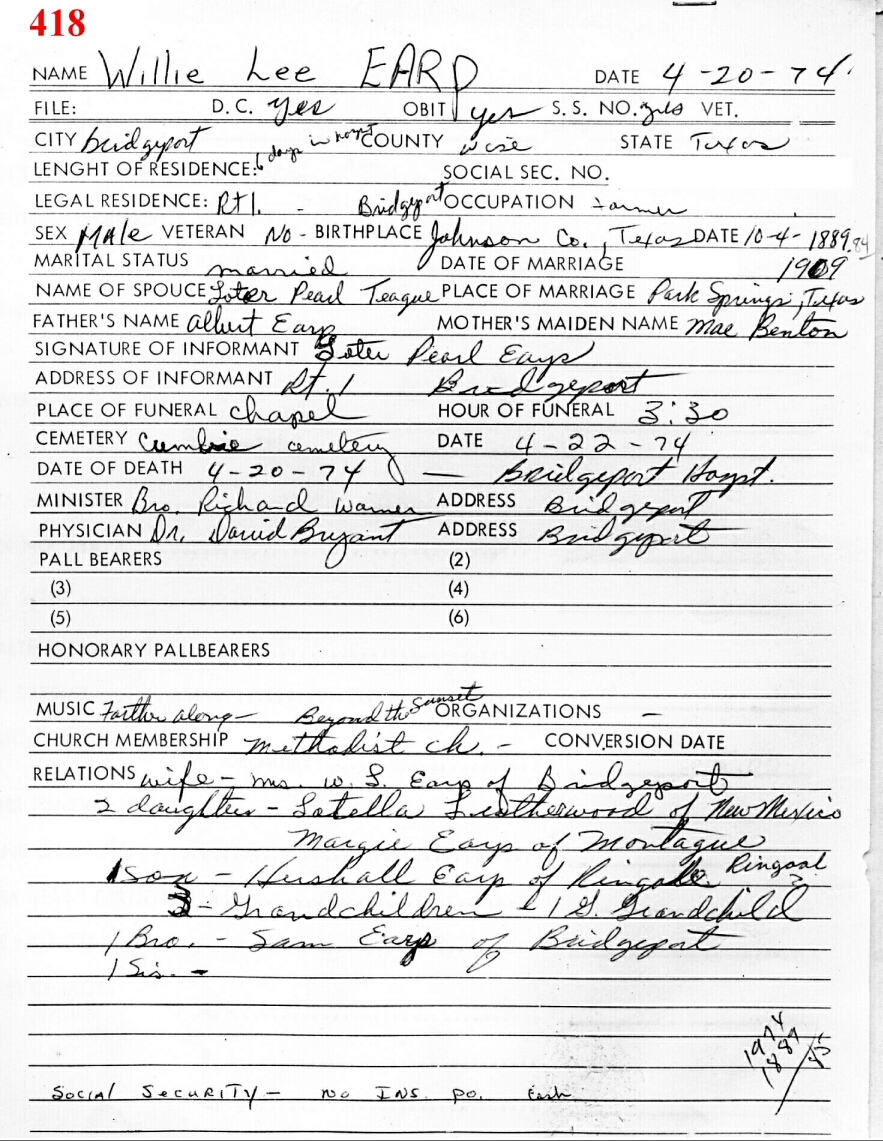 418
NAME Willie Lee EARP DATE 4-20-74
FILE: D.C. yes OBIT yes S.S. NO. VET.
CITY Bridgeport 6 days in hospt COUNTY Wise STATE Texas
LENGHT OF RESIDENCE: SOCIAL SEC. NO.
LEGAL RESIDENCE: Rt 1. - Bridgeport OCCUPATION Farmer
SEX Male VETERAN No - BIRTHPLACE Johnson Co., Texas DATE 10-4-1889. 84
MARITAL STATUS married DATE OF MARRIAGE 1909
NAME OF SPOUCE Loter Pearl Teague PLACE OF MARRIAGE Park Springs, Texas
FATHER'S NAME Albert Earp MOTHER'S MAIDEN NAME Mae Benton
SIGNATURE OF INFORMANT Loter Pearl Earp
ADDRESS OF INFORMANT Rt. 1 Bridgeport
PLACE OF FUNERAL chapel HOUR OF FUNERAL 3:30
CEMETERY Cumbie cemetery DATE 4-22-74
DATE OF DEATH 4-20-74 — Bridgeport Hospt.
MINISTER Bro. Richard Warner ADDRESS Bridgeport
PHYSICIAN Dr. David Bryant ADDRESS Bridgeport
PALL BEARERS (2)
(3) (4)
(5) (6)
HONORARY PALLBEARERS
MUSIC Farther along - Beyond the Sunset ORGANIZATIONS —
CHURCH MEMBERSHIP Methodist ch. - CONVERSION DATE
RELATIONS wife - Mrs. W. L. Earp of Bridgeport
2 daughters - Lotella Leatherwood of New Mexico
Margie Earp of Montague
1 Son - Hershall Earp of Ringold
3 - Grandchildren - 1 G. Grandchild
1 Bro. - Sam Earp of Bridgeport
1 Sis. -
1974
1889
85
Social Security - No INS. PO. Cash